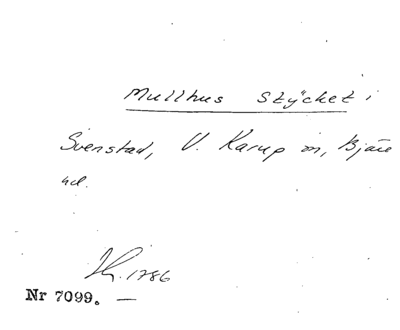 Mullhus stÿcket i
Svenstad, V. Karup sn, Bjäre
hd.
1786
Nr 7099. —